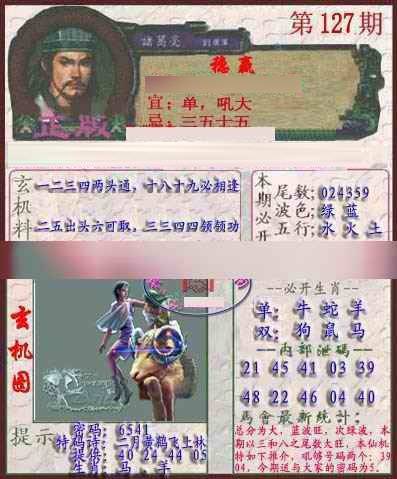 第127期
諸葛亮
稳赢
宜：单，吼大
忌：三五十五
正版
玄机料
一二三四两头通，十八十九必相逢
二五出头六可取，三三四四领领功
本期必开
尾数：024359
波色：绿 蓝
五行：水 火 土
玄机图
--必开生肖--
单：牛 蛇 羊
双：狗 鼠 马
--内部泄码--
21 45 41 03 39
48 22 46 04 40
馬會最新统计：
总分为大，蓝波旺，次绿波，本
期以三和八之尾数大旺，本仙机
特如下推介，吼够号码两个：39
04，今期送与大家的密码为5.
提示
密码：6541
特码诗：二月黄鹤飞上林
提供：40 24 44 05
生肖：马 . 羊